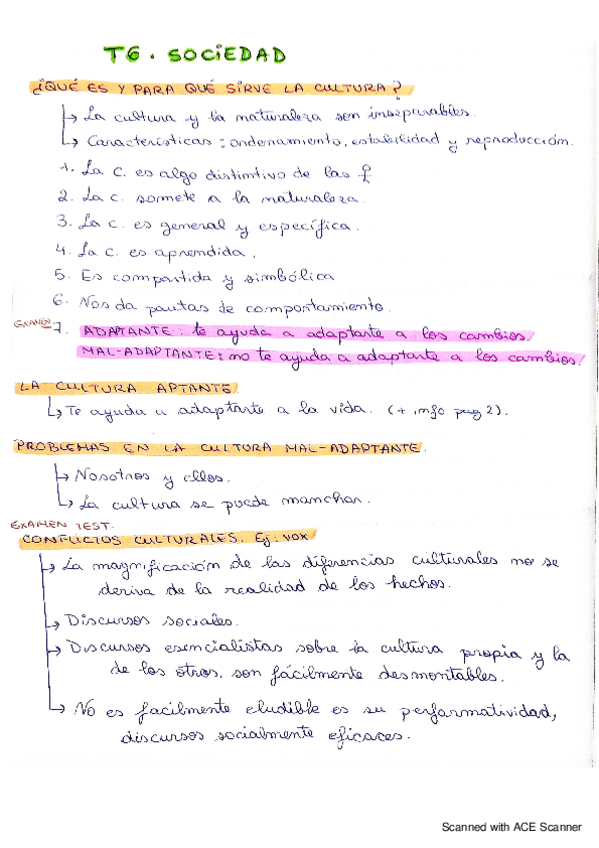 T6. SOCIEDAD
¿QUÉ ES Y PARA QUÉ SIRVE LA CULTURA?
↳ La cultura y la naturaleza son inseparables.
↳ Características: ordenamiento, estabilidad y reproducción.
1. La c. es algo distintivo de las
2. La c. somete a la naturaleza.
3. La c. es general y específica.
4. La c. es aprendida.
5. Es compartida y simbólica
6. Nos da pautas de comportamiento.
EXAMEN 7. ADAPTANTE: te ayuda a adaptarte a los cambios.
MAL-ADAPTANTE: no te ayuda a adaptarte a los cambios.
LA CULTURA APTANTE
↳ Te ayuda a adaptarte a la vida. (+ info pag 2).
PROBLEMAS EN LA CULTURA MAL-ADAPTANTE.
↳ Nosotros y ellos.
↳ La cultura se puede manchar.
EXAMEN TEST.
CONFLICTOS CULTURALES. Ej: VOX
↳ La magnificación de las diferencias culturales no se
deriva de la realidad de los hechos.
↳ Discursos sociales.
↳ Discursos esencialistas sobre la cultura propia y la
de los otros, son fácilmente desmontables.
↳ No es facilmente eludible es su performatividad,
discursos socialmente eficaces.
Scanned with ACE Scanner